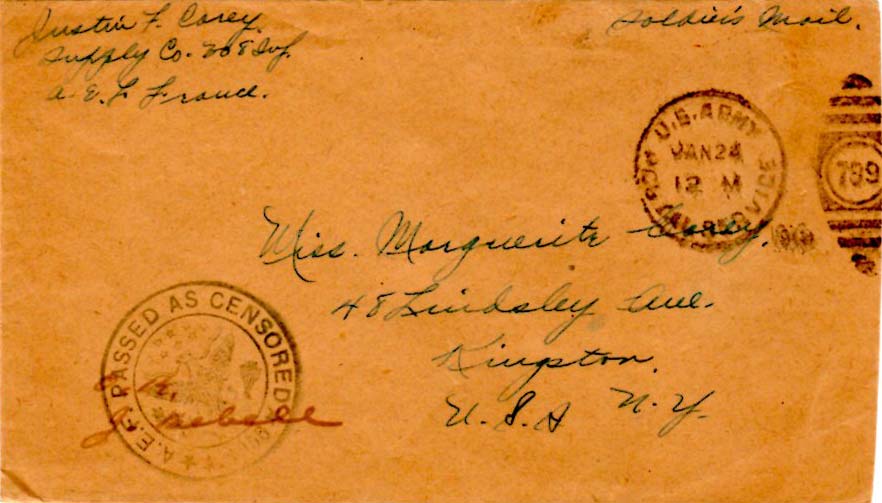 Justin F. Corey.
Supply Co. 308 Inf.
A. E. F. France.
Soldier's Mail.
U.S. ARMY
JAN 24
12 M
SERVICE
789
Miss. Marguerite Corey.
48 Lindsley Ave.
Kingston.
U. S. A N. Y.
A.E.F. PASSED AS CENSORED